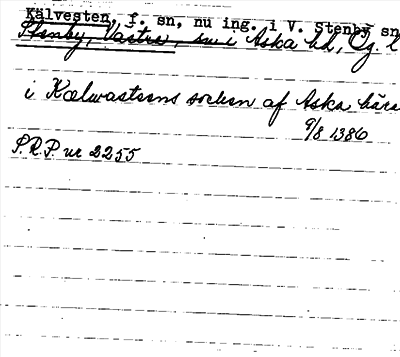 Kälvesten, f. sn, nu ing. i V. Stenby sn
Stenby, Västra, sn i Aska hd, Ög. l
i Kælwastens sockn af Aska hära
9/8 1386
S.R.P. nr 2255